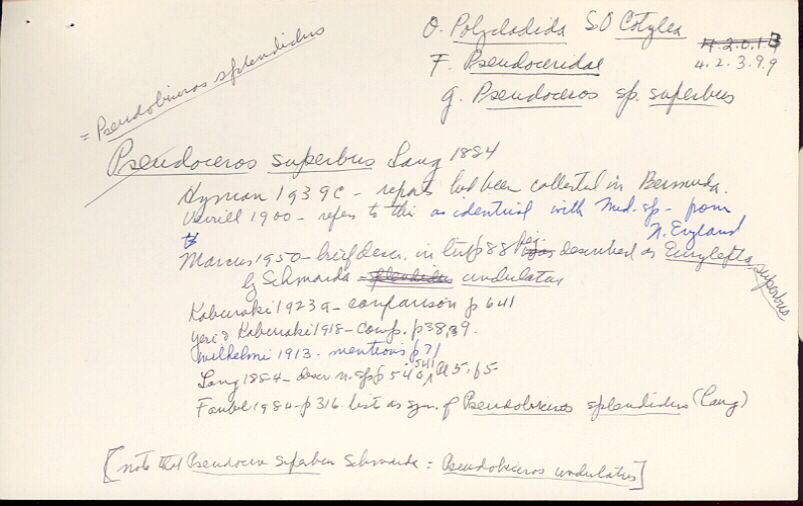 O. Polycladida S.O Cotylea 4.2.0.1.3
F. Pseudoceridae 4.2.3.9.9
g. Pseudoceros sp. superbus
= Pseudobiceros splendidus
Pseudoceros superbus Lang 1884
Hyman 1939c - reports had been collected in Bermuda.
Verrill 1900 - refers to this as identical with Med. sp - from
N. England
Marcus 1950 - brief descr. in p 88 described as Eurylepta superbus
by Schmarda splendidus undulatus
Kaburaki 1923a - comparison p 641
Yeri & Kaburaki 1918 - comp. p38,39.
Wilhelmi 1913. mentions p 71
Lang 1884 - descr n. sp p 540, 541 pl 5. f5
Faubel 1984 - p 316. list as syn. of Pseudobiceros splendidus (Lang)
[note that Pseudoceros superbus Schmarda = Pseudobiceros undulatus]